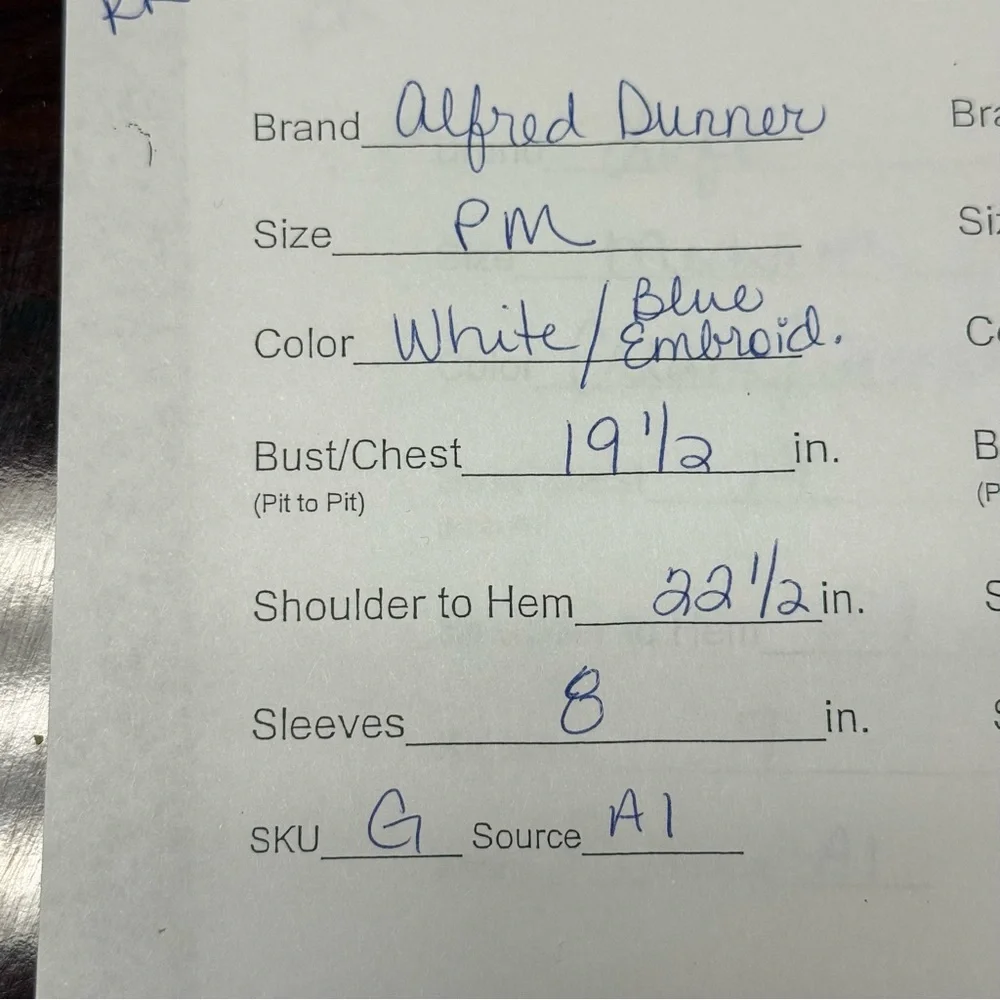 Brand Alfred Dunner
Size PM
Color White / Blue Embroid.
Bust/Chest 19 1/2 in.
(Pit to Pit)
Shoulder to Hem 22 1/2 in.
Sleeves 8 in.
SKU G Source A1